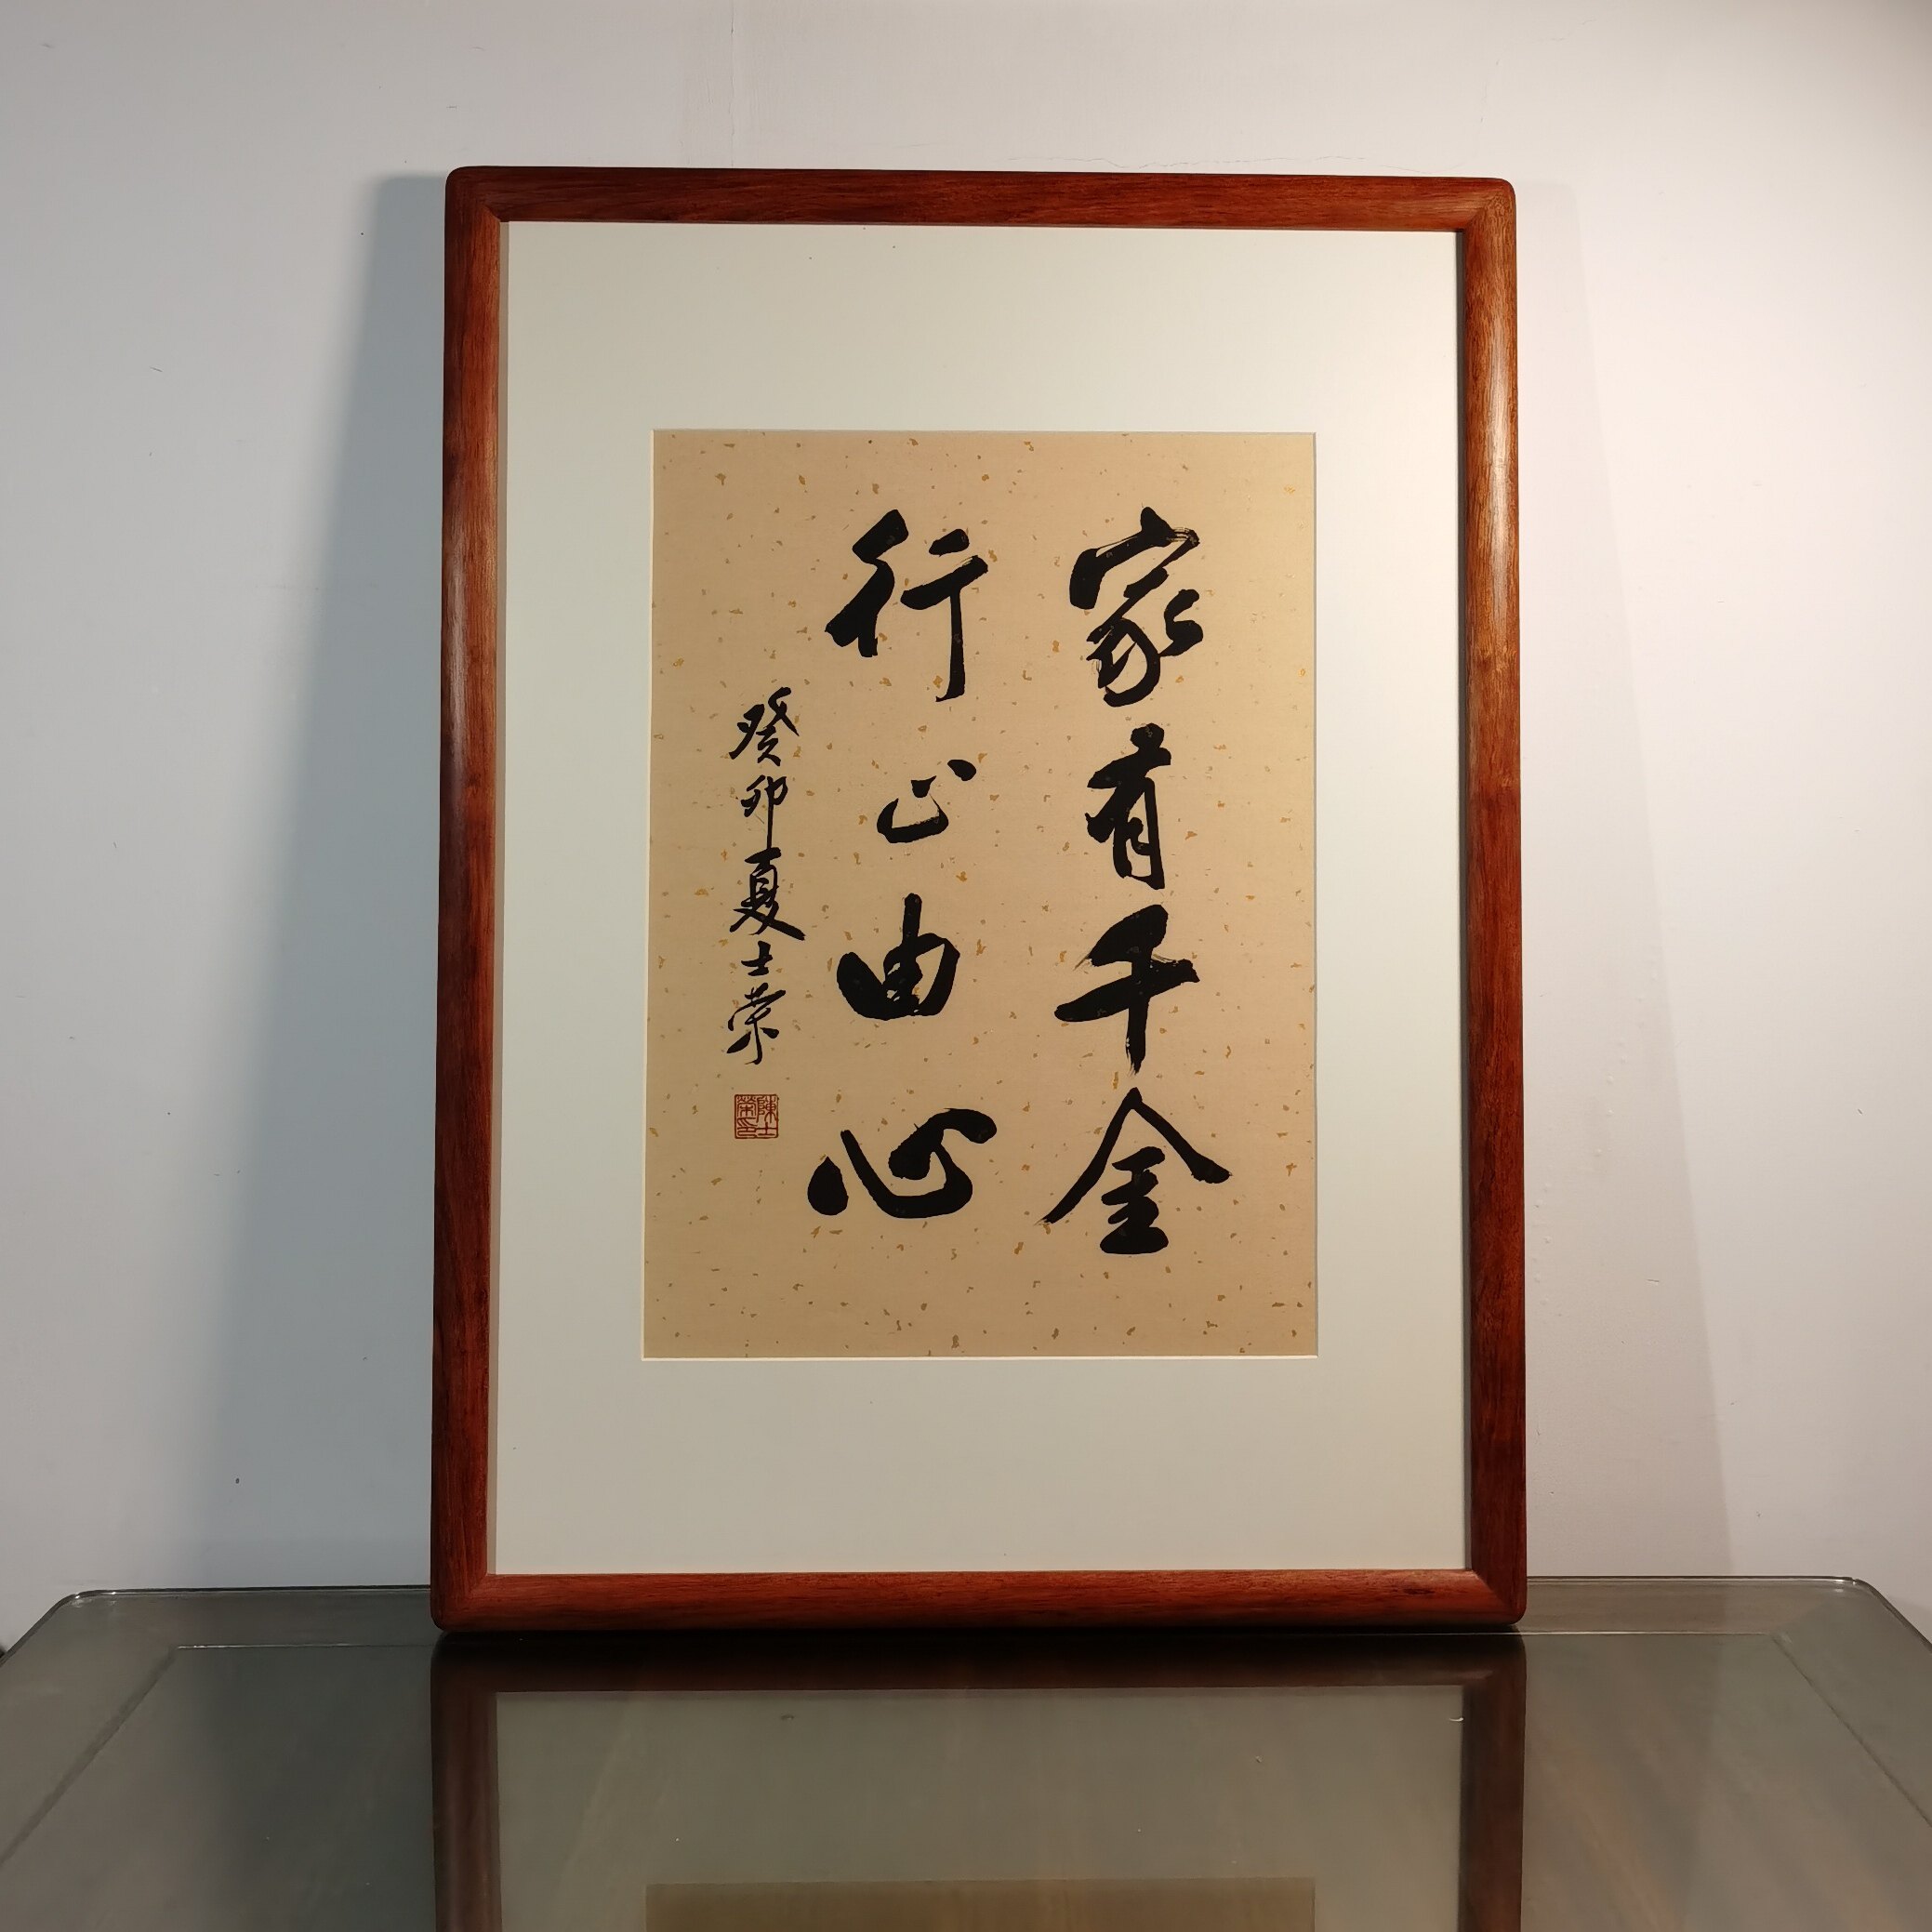 家有千金
行止由心
癸卯夏士荣
陳士榮印